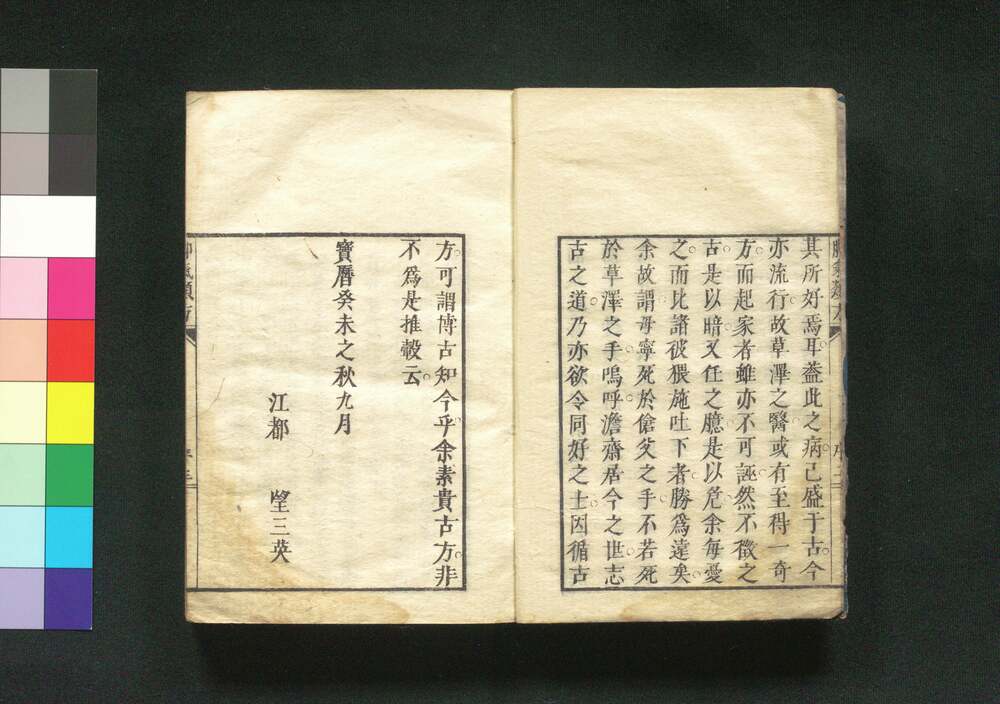 其所好焉耳蓋此之病已盛于古今
亦流行故草澤之醫或有至得一奇
方而起家者雖亦不可誣然不徵之
古是以暗又任之臆是以危余每憂
之而比諸彼猥施吐下者勝為達矣
余故謂毋寧死於傖父之手不若死
於草澤之手嗚呼澹齋居今之世志
古之道乃亦欲令同好之士因循古
方可謂博古知今乎余素貴古方非
不為是推轂云
寶曆癸未之秋九月
江都 望三英